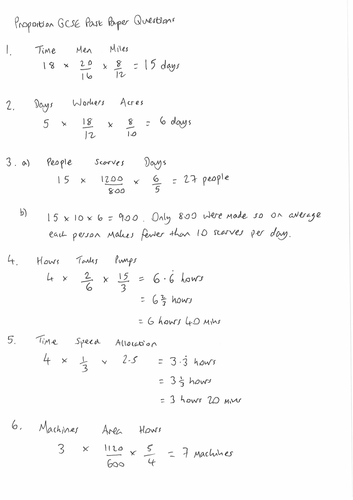 Proportion GCSE Past Paper Questions
1. Time Men Miles
18 × 20/16 × 8/12 = 15 days
2. Days Workers Acres
5 × 18/12 × 8/10 = 6 days
3. a) People Scarves Days
15 × 1200/800 × 6/5 = 27 people
b) 15 × 10 × 6 = 900. Only 800 were made so on average
each person makes fewer than 10 scarves per day.
4. Hours Tanks Pumps
4 × 2/6 × 15/3 = 6.6̇ hours
= 6 2/3 hours
= 6 hours 40 mins
5. Time Speed Allocation
4 × 1/3 × 2.5 = 3.3̇ hours
= 3 1/3 hours
= 3 hours 20 mins
6. Machines Area Hours
3 × 1120/600 × 5/4 = 7 machines